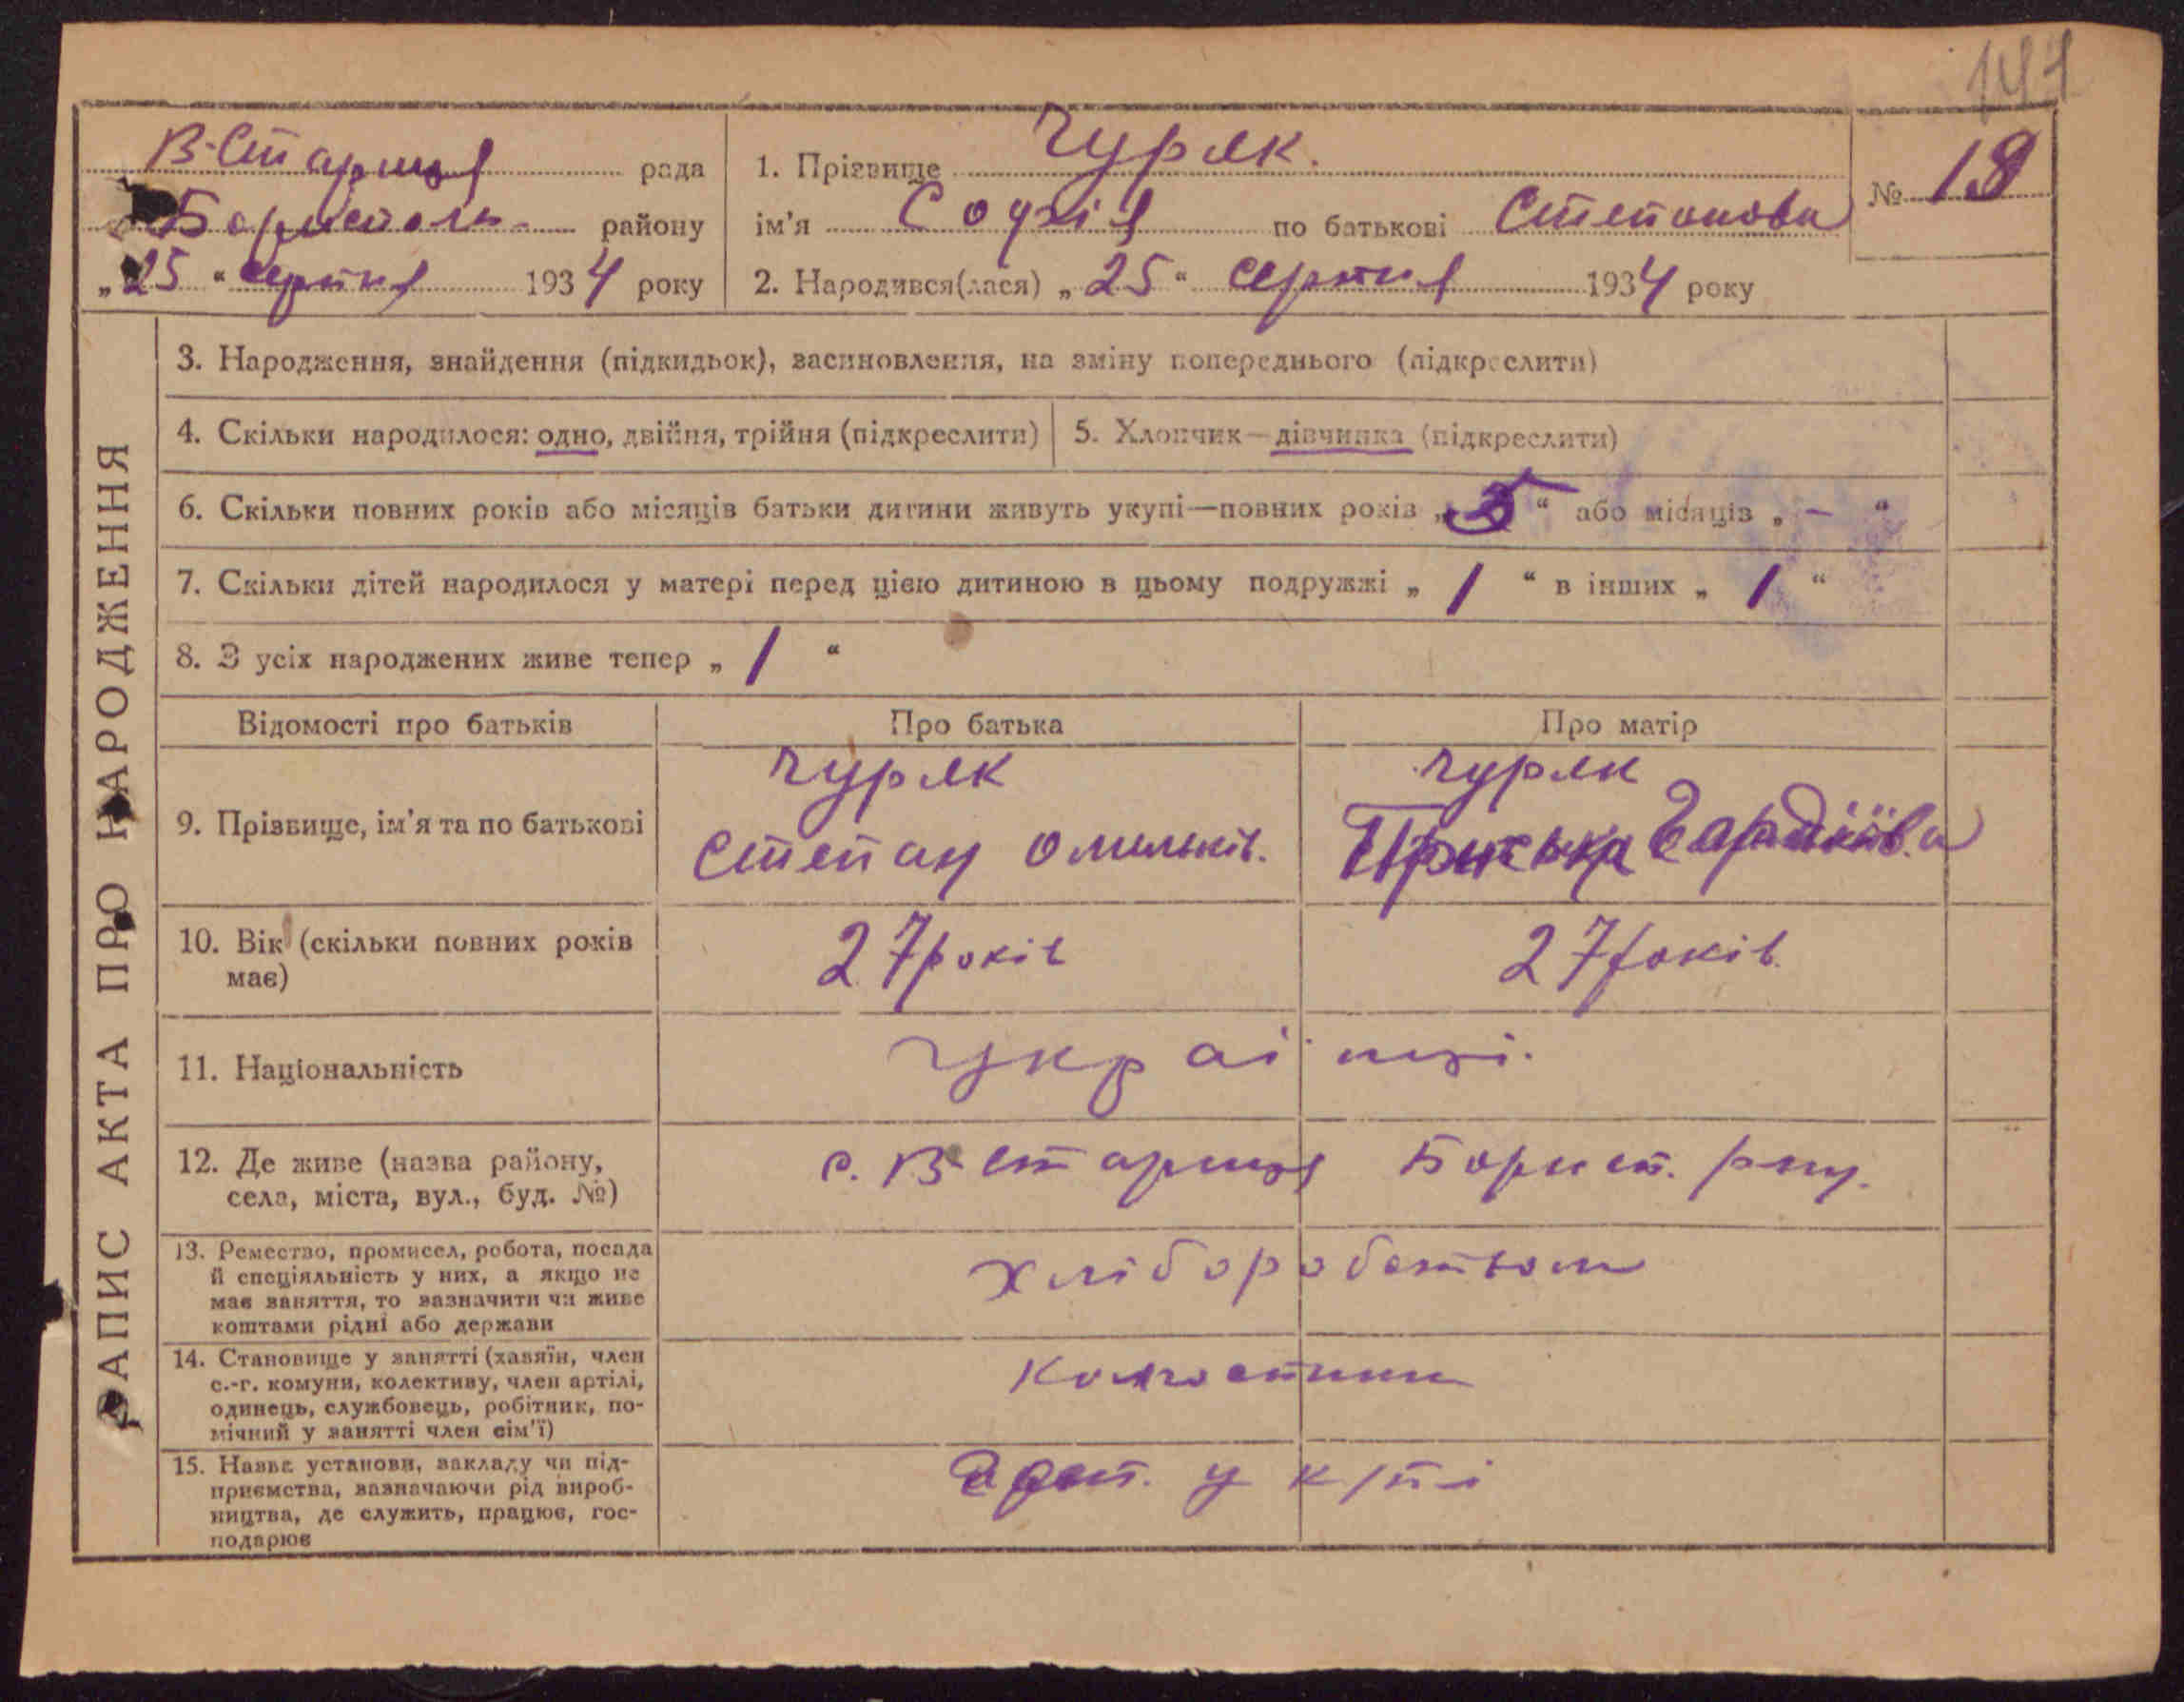 144
В-Старця рада
Бориспољ. району
„25“ серпня 1934 року
1. Прізвище Чуряк.
ім'я Софія по батькові Степанова
2. Народився(лася) „25“ серпня 1934 року
№ 18
ЗАПИС АКТА ПРО НАРОДЖЕННЯ
3. Народження, знайдення (підкидьок), засиновлення, на зміну попереднього (підкреслити)
4. Скільки народилося: одно, двійня, трійня (підкреслити)
5. Хлопчик—дівчинка (підкреслити)
6. Скільки повних років або місяців батьки дитини живуть укупі—повних років „5“ або місяців „–“
7. Скільки дітей народилося у матері перед цією дитиною в цьому подружжі „1“ в інших „1“
8. З усіх народжених живе тепер „1“
Відомості про батьків
Про батька
Про матір
9. Прізвище, ім'я та по батькові
Чуряк
Степан Омельків.
Чуряк
Пріська
10. Вік (скільки повних років
має)
27 років
27 років.
11. Національність
Українці.
12. Де живе (назва району,
села, міста, вул., буд. №)
с. В-Старця Борисп. рну.
13. Ремество, промисел, робота, посада
й спеціяльність у них, а якщо не
має заняття, то зазначити чи живе
коштами рідні або держави
хлібороботвом
14. Становище у занятті (хазяїн, член
с.-г. комуни, колективу, член артілі,
одинець, службовець, робітник, по-
мічний у занятті член сім'ї)
Колгоспники
15. Назва установи, закладу чи під-
приємства, зазначаючи рід вироб-
ництва, де служить, працює, гос-
подарює
у к/пі